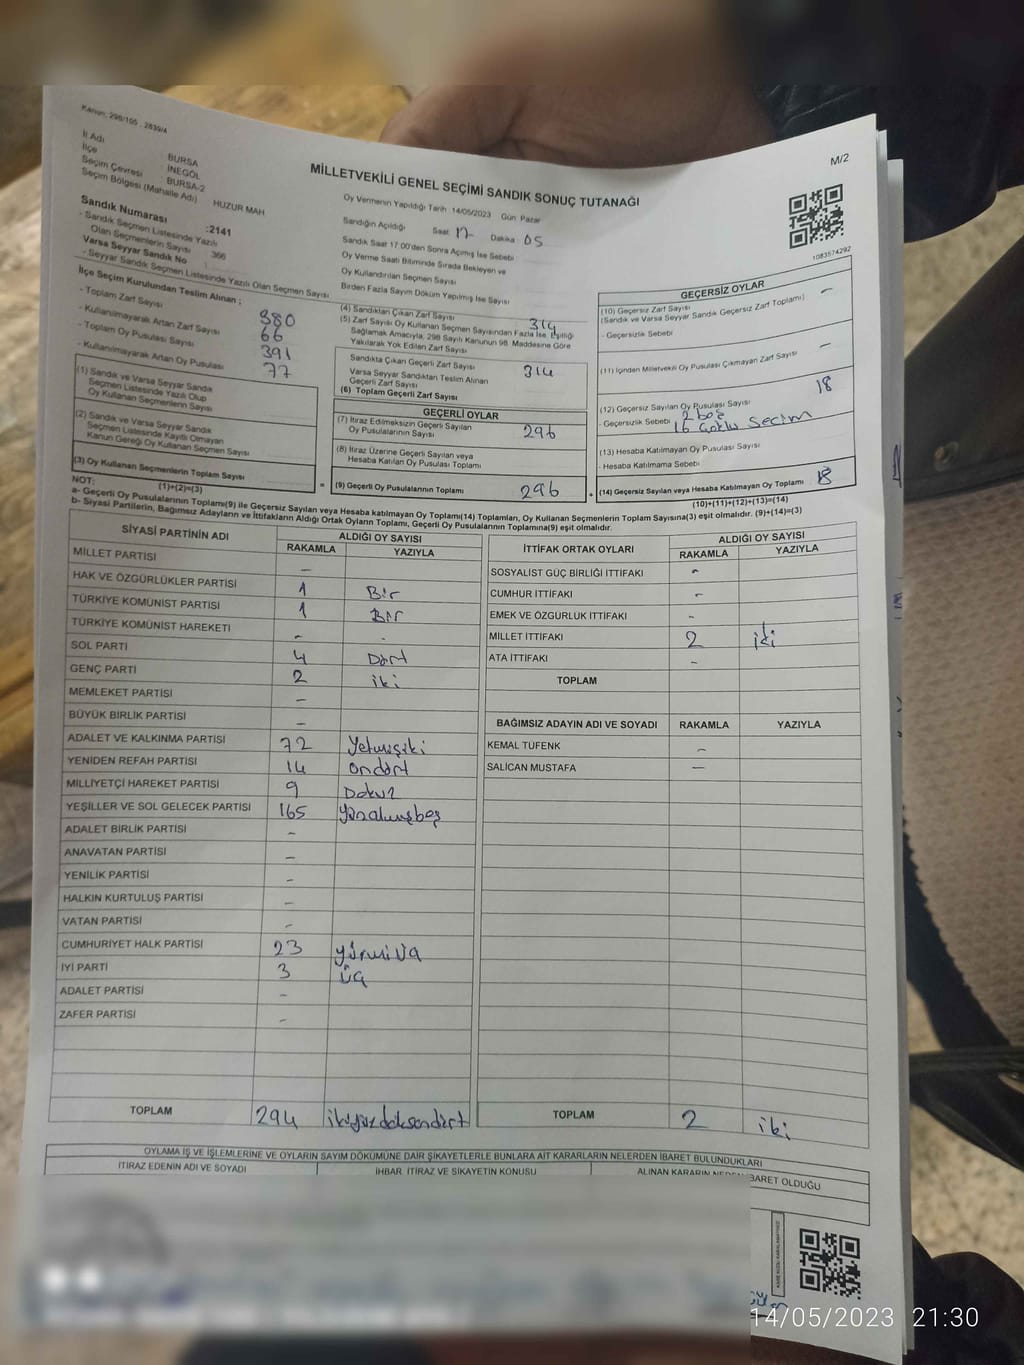 Kanun: 298/105 - 2839/4
M/2
İl Adı : BURSA
İlçe : İNEGÖL
Seçim Çevresi : BURSA-2
Seçim Bölgesi (Mahalle Adı) HUZUR MAH
MİLLETVEKİLİ GENEL SEÇİMİ SANDIK SONUÇ TUTANAĞI
Oy Vermenin Yapıldığı Tarih 14/05/2023 Gün Pazar
Sandığın Açıldığı Saat 17- Dakika 05
Sandık Saat 17.00'den Sonra Açılmış İse Sebebi :
Oy Verme Saati Bitiminde Sırada Bekleyen ve
Oy Kullandırılan Seçmen Sayısı
Birden Fazla Sayım Döküm Yapılmış İse Sayısı
1083574292
Sandık Numarası :2141
- Sandık Seçmen Listesinde Yazılı
Olan Seçmenlerin Sayısı 366
Varsa Seyyar Sandık No
- Seyyar Sandık Seçmen Listesinde Yazılı Olan Seçmen Sayısı
İlçe Seçim Kurulundan Teslim Alınan ;
- Toplam Zarf Sayısı 380
- Kullanılmayarak Artan Zarf Sayısı 66
- Toplam Oy Pusulası Sayısı 391
- Kullanılmayarak Artan Oy Pusulası 77
(1) Sandık ve Varsa Seyyar Sandık
Seçmen Listesinde Yazılı Olup
Oy Kullanan Seçmenlerin Sayısı
(2) Sandık ve Varsa Seyyar Sandık
Seçmen Listesinde Kayıtlı Olmayan
Kanun Gereği Oy Kullanan Seçmen Sayısı
(3) Oy Kullanan Seçmenlerin Toplam Sayısı
(1)+(2)=(3)
(4) Sandıktan Çıkan Zarf Sayısı 314
(5) Zarf Sayısı Oy Kullanan Seçmen Sayısından Fazla İse Eşitliği
Sağlamak Amacıyla, 298 Sayılı Kanunun 98. Maddesine Göre
Yakılarak Yok Edilen Zarf Sayısı
Sandıkta Çıkan Geçerli Zarf Sayısı 314
Varsa Seyyar Sandıktan Teslim Alınan
Geçerli Zarf Sayısı
(6) Toplam Geçerli Zarf Sayısı
GEÇERLİ OYLAR
(7) İtiraz Edilmeksizin Geçerli Sayılan
Oy Pusulalarının Sayısı 296
(8) İtiraz Üzerine Geçerli Sayılan veya
Hesaba Katılan Oy Pusulası Toplamı
= (9) Geçerli Oy Pusulalarının Toplamı 296
GEÇERSİZ OYLAR
(10) Geçersiz Zarf Sayısı -
(Sandık ve Varsa Seyyar Sandık Geçersiz Zarf Toplamı)
- Geçersizlik Sebebi
(11) İçinden Milletvekili Oy Pusulası Çıkmayan Zarf Sayısı -
(12) Geçersiz Sayılan Oy Pusulası Sayısı 18
- Geçersizlik Sebebi 2 boş
16 çoklu Seçim
(13) Hesaba Katılmayan Oy Pusulası Sayısı
- Hesaba Katılmama Sebebi
+ (14) Geçersiz Sayılan veya Hesaba Katılmayan Oy Toplamı 18
(10)+(11)+(12)+(13)=(14)
NOT:
a- Geçerli Oy Pusulalarının Toplamı(9) ile Geçersiz Sayılan veya Hesaba katılmayan Oy Toplamı(14) Toplamları, Oy Kullanan Seçmenlerin Toplam Sayısına(3) eşit olmalıdır. (9)+(14)=(3)
b- Siyasi Partilerin, Bağımsız Adayların ve İttifakların Aldığı Ortak Oyların Toplamı, Geçerli Oy Pusulalarının Toplamına(9) eşit olmalıdır.
SİYASİ PARTİNİN ADI ALDIĞI OY SAYISI
RAKAMLA YAZIYLA
MİLLET PARTİSİ -
HAK VE ÖZGÜRLÜKLER PARTİSİ 1 Bir
TÜRKİYE KOMÜNİST PARTİSİ 1 Bir
TÜRKİYE KOMÜNİST HAREKETİ - -
SOL PARTİ 4 Dört
GENÇ PARTİ 2 iki
MEMLEKET PARTİSİ -
BÜYÜK BİRLİK PARTİSİ -
ADALET VE KALKINMA PARTİSİ 72 Yetmişiki
YENİDEN REFAH PARTİSİ 14 ondört
MİLLİYETÇİ HAREKET PARTİSİ 9 Dokuz
YEŞİLLER VE SOL GELECEK PARTİSİ 165 Yüzaltmışbeş
ADALET BİRLİK PARTİSİ -
ANAVATAN PARTİSİ -
YENİLİK PARTİSİ -
HALKIN KURTULUŞ PARTİSİ -
VATAN PARTİSİ -
CUMHURİYET HALK PARTİSİ 23 yirmiüç
İYİ PARTİ 3 üç
ADALET PARTİSİ -
ZAFER PARTİSİ -
TOPLAM 294 ikiyüzdoksandört
İTTİFAK ORTAK OYLARI ALDIĞI OY SAYISI
RAKAMLA YAZIYLA
SOSYALİST GÜÇ BİRLİĞİ İTTİFAKI -
CUMHUR İTTİFAKI -
EMEK VE ÖZGÜRLÜK İTTİFAKI -
MİLLET İTTİFAKI 2 iki
ATA İTTİFAKI -
TOPLAM
BAĞIMSIZ ADAYIN ADI VE SOYADI RAKAMLA YAZIYLA
KEMAL TÜFENK -
SALİCAN MUSTAFA -
TOPLAM 2 iki
OYLAMA İŞ VE İŞLEMLERİNE VE OYLARIN SAYIM DÖKÜMÜNE DAİR ŞİKAYETLERLE BUNLARA AİT KARARLARIN NELERDEN İBARET BULUNDUKLARI
İTİRAZ EDENİN ADI VE SOYADI İHBAR, İTİRAZ VE ŞİKAYETİN KONUSU ALINAN KARARIN NEDEN İBARET OLDUĞU
14/05/2023 21:30